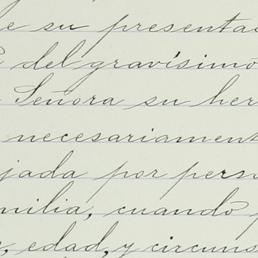 e su presentac
del gravísimo
Señora su her
necesariament
jada por perso
milia, cuando
, edad, y circuns